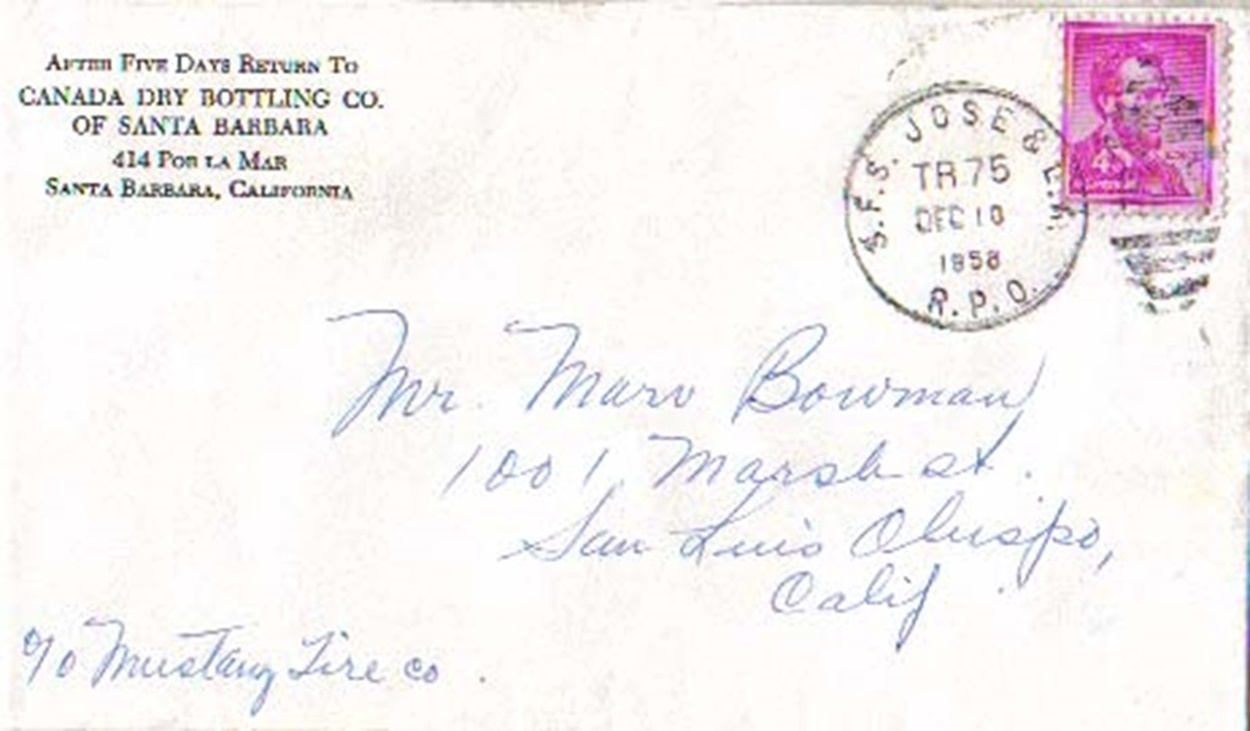 AFTER FIVE DAYS RETURN TO
CANADA DRY BOTTLING CO.
OF SANTA BARBARA
414 POR LA MAR
SANTA BARBARA, CALIFORNIA
S.F.S. JOSE & L.A.
TR 75
DEC 10
1958
R.P.O.
4¢
Mr. Marv Bowman
1001 Marsh st.
San Luis Obispo,
Calif.
c/o Mustang Tire co.